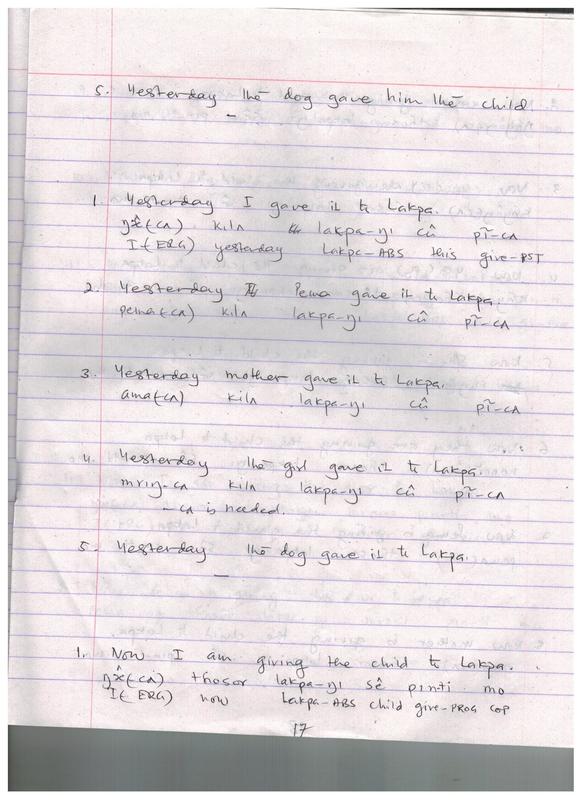 5. Yesterday the dog gave him the child
–
1. Yesterday I gave it to Lakpa.
ŋx̂(cʌ) kilʌ lakpa-ŋı cû pĩ-cʌ
I(ERG) yesterday Lakpa-ABS this give-PST
2. Yesterday Pema gave it to Lakpa.
pema(cʌ) kilʌ lakpa-ŋı cû pĩ-cʌ
3. Yesterday mother gave it to Lakpa.
ama(cʌ) kilʌ lakpa-ŋı cû pĩ-cʌ
4. Yesterday the girl gave it to Lakpa.
mrıŋ-cʌ kilʌ lakpa-ŋı cû pĩ-cʌ
-cʌ is needed.
5. Yesterday the dog gave it to Lakpa.
–
1. Now I am giving the child to Lakpa.
ŋx̂(cʌ) thosor lakpa-ŋı sê pınti mo
I(ERG) now Lakpa-ABS child give-PROG COP
17